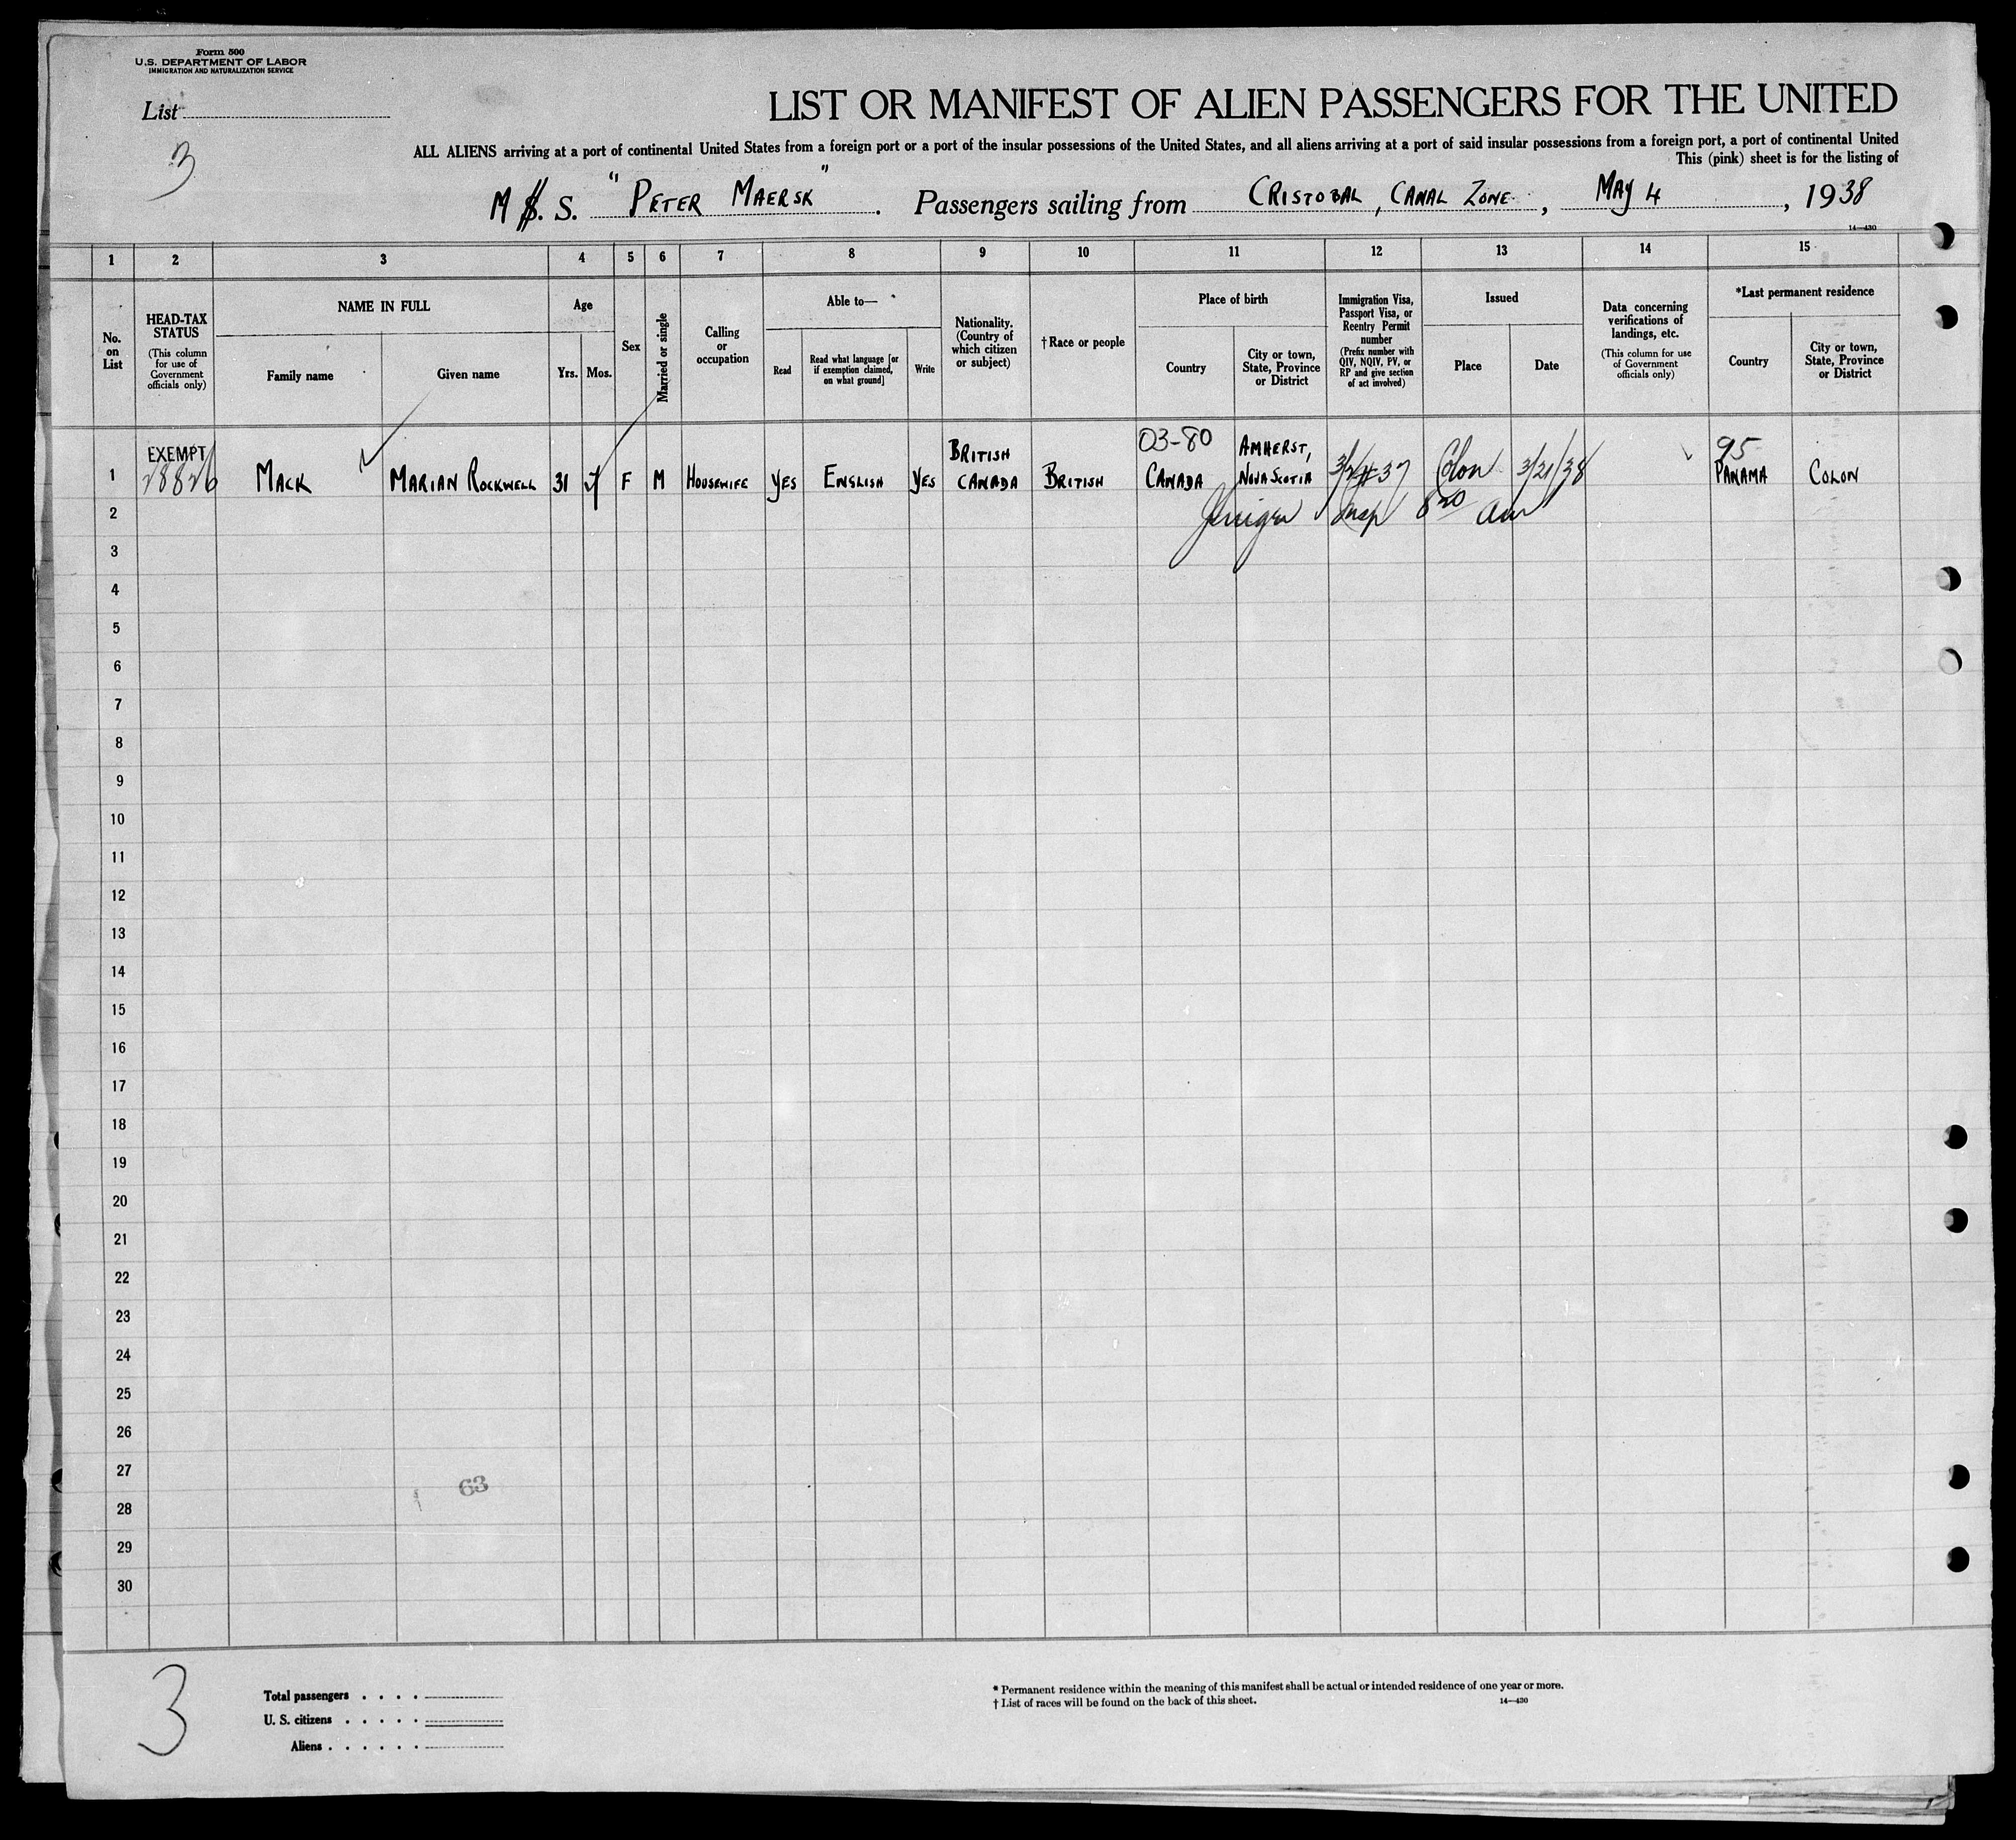 Form 500
U.S. DEPARTMENT OF LABOR
IMMIGRATION AND NATURALIZATION SERVICE
List
3
LIST OR MANIFEST OF ALIEN PASSENGERS FOR THE UNITED
ALL ALIENS arriving at a port of continental United States from a foreign port or a port of the insular possessions of the United States, and all aliens arriving at a port of said insular possessions from a foreign port, a port of continental United
This (pink) sheet is for the listing of
M S. S. "PETER MAERSK". Passengers sailing from CRISTOBAL, CANAL ZONE, MAY 4, 1938
14—430
1 2 3 4 5 6 7 8 9 10 11 12 13 14 15
No. on List
HEAD-TAX STATUS
(This column for use of Government officials only)
NAME IN FULL
Family name
Given name
Age
Yrs.
Mos.
Sex
Married or single
Calling or occupation
Able to—
Read
Read what language [or if exemption claimed, on what ground]
Write
Nationality. (Country of which citizen or subject)
†Race or people
Place of birth
Country
City or town, State, Province or District
Immigration Visa, Passport Visa, or Reentry Permit number
(Prefix number with QIV, NQIV, PV, or RP and give section of act involved)
Issued
Place
Date
Data concerning verifications of landings, etc.
(This column for use of Government officials only)
*Last permanent residence
Country
City or town, State, Province or District
EXEMPT
1 MACK MARIAN ROCKWELL 31 F M HOUSEWIFE YES ENGLISH YES BRITISH CANADA BRITISH 03-80 CANADA AMHERST, NOVA SCOTIA Colon 3/21/38 95 PANAMA COLON
2 Insp 8 20 am
3
4
5
6
7
8
9
10
11
12
13
14
15
16
17
18
19
20
21
22
23
24
25
26
27
63
28
29
30
3
Total passengers
U. S. citizens
Aliens
* Permanent residence within the meaning of this manifest shall be actual or intended residence of one year or more.
† List of races will be found on the back of this sheet.
14—430